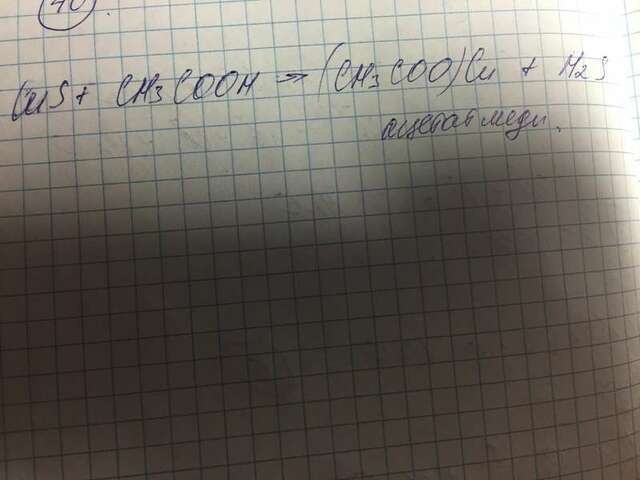 40
CuS + CH3COOH => (CH3COO)Cu + H2S
ацетат меди.